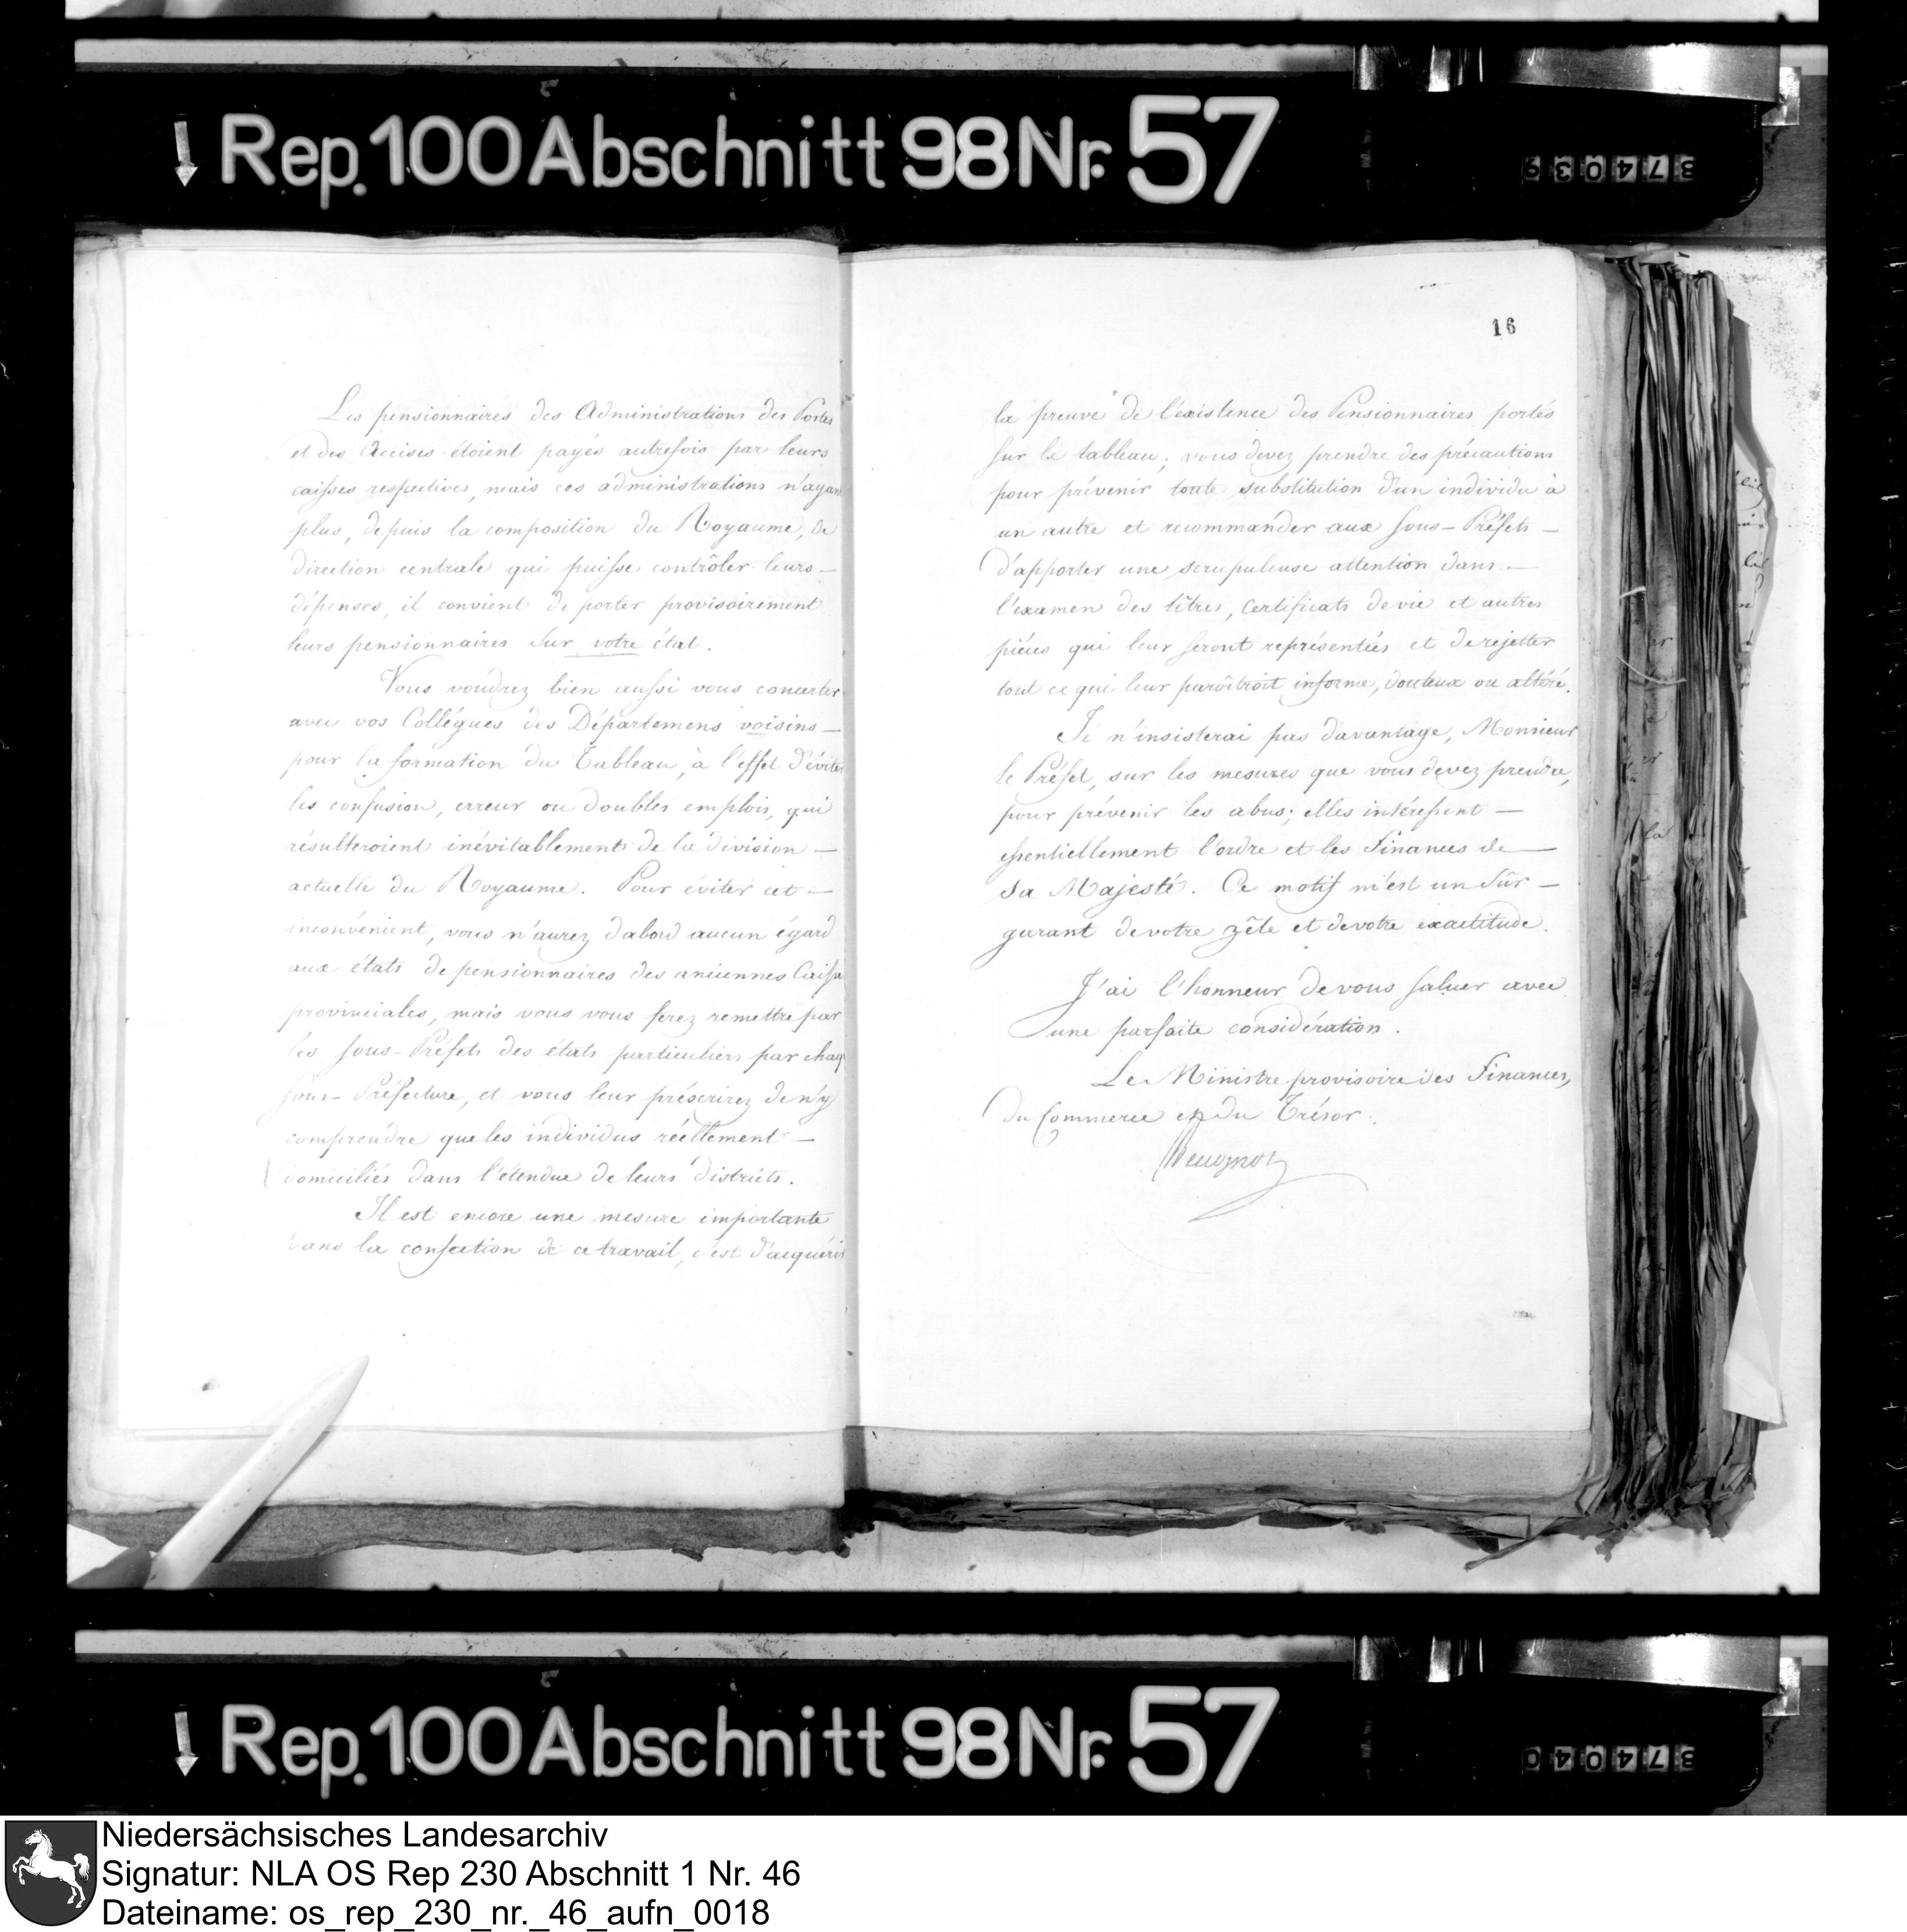 Rep. 100 Abschnitt 98 Nr. 57
3 7 4 0 3 9
Les pensionnaires des Administrations des Postes
et des Accises étoient payés autrefois par leurs
caisses respectives, mais ces administrations n'ayan
plus, depuis la composition du Royaume, de
direction centrale qui puisse contrôler leurs —
dépenses, il convient de porter provisoirement
leurs pensionnaires sur votre état.
Vous voudrez bien aussi vous concerter
avec vos Collégues des Départemens voisins —
pour la formation du Tableau, à l'effet d'éviter
les confusion, erreur ou doubles emplois, qui
résulteroient inévitablement de la division —
actuelle du Royaume. Pour éviter cet —
inconvénient, vous n'aurez d'abord aucun égard
aux états de pensionnaires des anciennes Caisse
provinciales, mais vous vous ferez remettre par
les Sous-Préfets des états particuliers par chaq
Sous-Préfecture, et vous leur préscrirez de n'y
comprendre que les individus réellement —
domiciliés dans l'étendue de leurs districts.
Il est encore une mesure importante
dans la confection de ce travail, c'est d'acquérir
16
la preuve de l'existence des Pensionnaires portés
sur le tableau; vous devez prendre des précautions
pour prévenir toute substitution d'un individu à
un autre et recommander aux Sous-Préfets —
d'apporter une scrupuleuse attention dans —
l'examen des titres, certificats de vie et autres
piéces qui leur seront représentées et de rejetter
tout ce qui leur paroîtroit informe, douteux ou altéré.
Je n'insisterai pas davantage, Monsieur
le Préfet, sur les mesures que vous devez prendre,
pour prévenir les abus; elles intéressent —
essentiellement l'ordre et les Finances de —
Sa Majesté. Ce motif m'est un sûr —
garant de votre zèle et de votre exactitude.
J'ai l'honneur de vous saluer avec
une parfaite considération.
Le Ministre provisoire des Finances,
du Commerce et du Trésor.
Beugnot
Rep. 100 Abschnitt 98 Nr. 57
3 7 4 0 4 0
Niedersächsisches Landesarchiv
Signatur: NLA OS Rep 230 Abschnitt 1 Nr. 46
Dateiname: os_rep_230_nr._46_aufn_0018